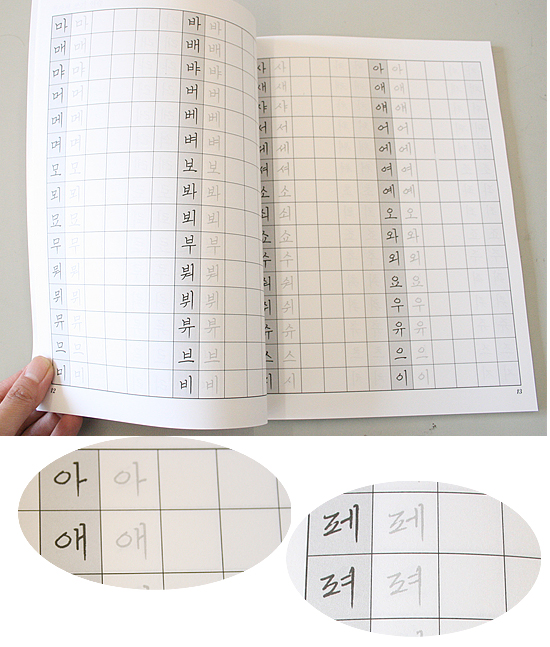 마 마 바 바
매 매 배 배
먀 먀 뱌 뱌
머 머 버 버
메 메 베 베
며 며 벼 벼
모 모 보 보
뫼 뫼 봐 봐
묘 묘 뵈 뵈
무 무 부 부
뭐 뭐 붜 붜
뮈 뮈 뷔 뷔
뮤 뮤 뷰 뷰
므 므 브 브
미 미 비 비
12
사 사 아 아
새 새 애 애
샤 샤 얘 얘
서 서 어 어
세 세 에 에
셔 셔 여 여
소 소 예 예
쇠 쇠 오 오
쇼 쇼 와 와
수 수 외 외
숴 숴 요 요
쉬 쉬 우 우
슈 슈 유 유
스 스 으 으
시 이 이
13
아 아
애 애
레 레
려 려